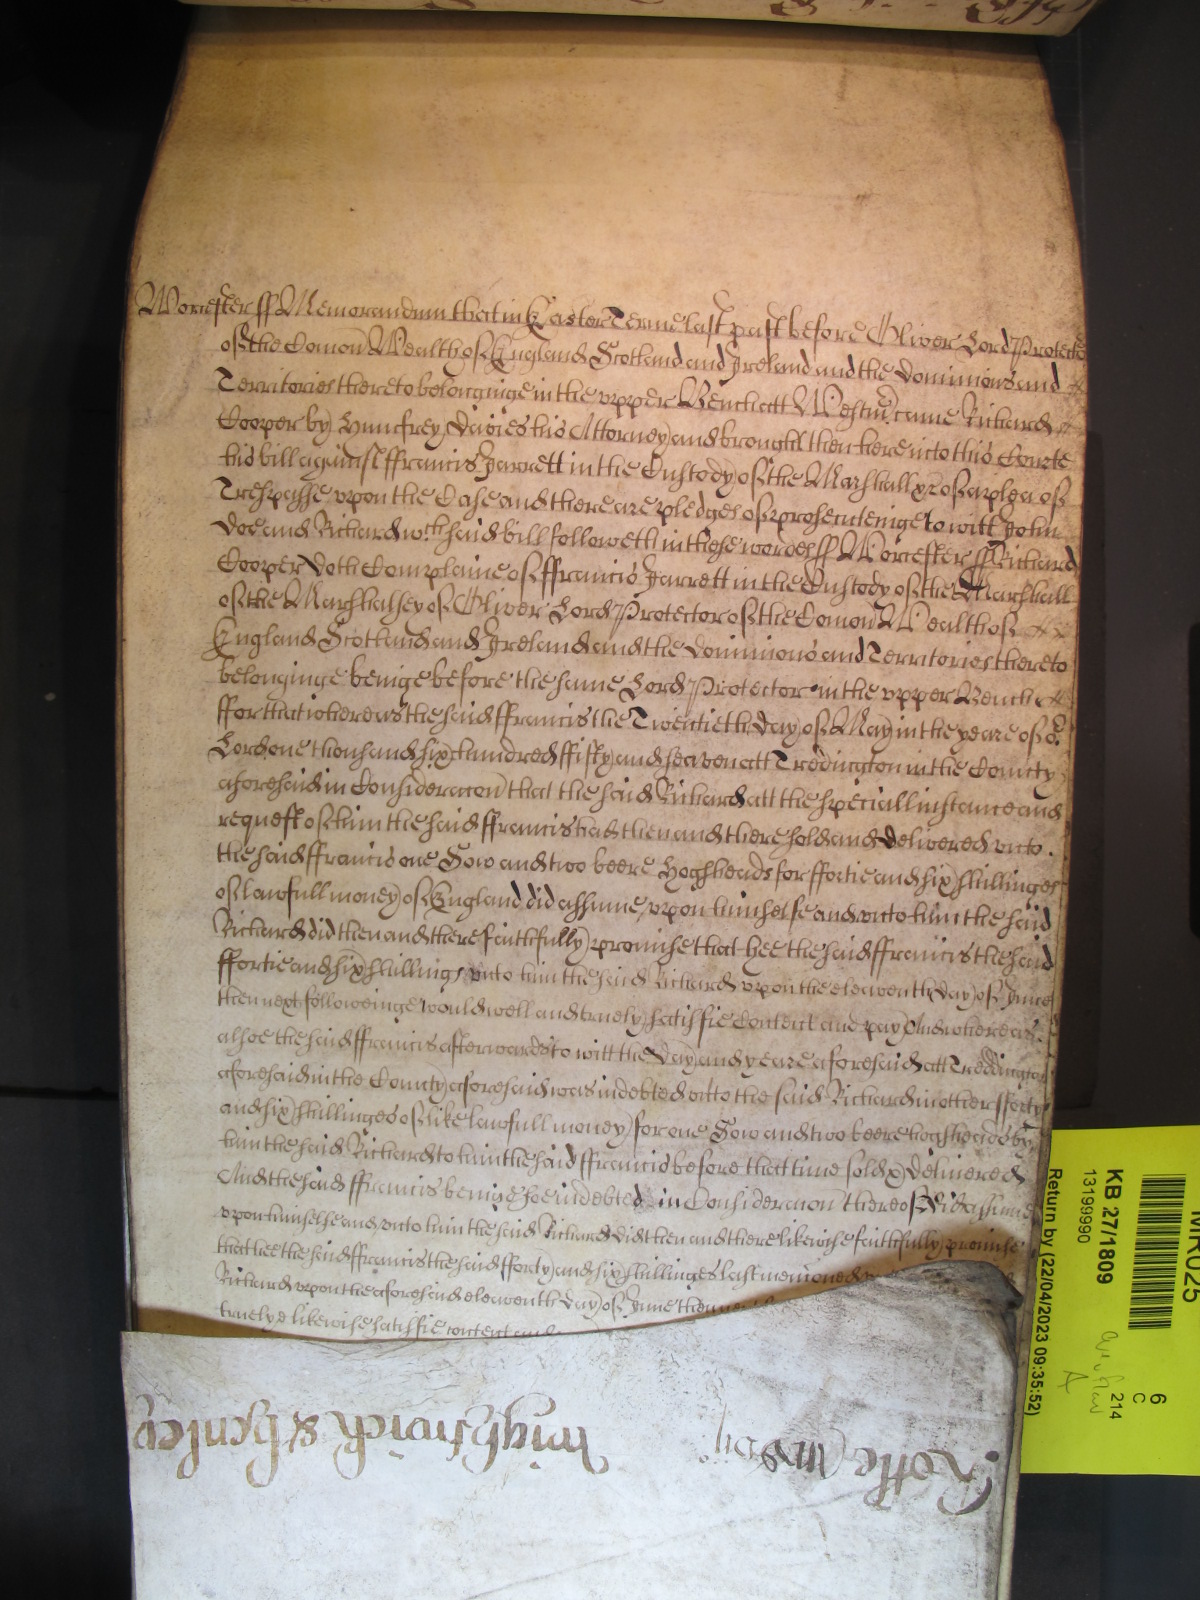 Worcester ss Memorandum that in Easter Terme last past before Oliver Lord Protector
of the Comon Wealth of England Scotland and Ireland and the Dominions and
Territories thereto belonginge in the upper Bench att Westm came Richard
Cooper by Humfrey Davies his Attorney and brought then here into this Courte
his bill against ffrancis Jarrett in the Custody of the Marshall &c of a plea of
Trespasse upon the Case and there are pledges of prosecuteinge to witt John
Doe and Richard wch said bill followeth in these wordes ss Worcester ss Richard
Cooper doth Complaine of ffrancis Jarrett in the Custody of the Marshall
of the Marshalsey of Oliver Lord Protector of the Comon Wealth of
England Scotland and Ireland and the Dominions and Territories thereto
belonginge beinge before the same Lord Protector in the upper Bench
ffor that whereas the said ffrancis the Twentieth day of May in the yeare of or
Lord one thousand six hundred fifty and seaven att Tredington in the County
aforesaid in Consideracon that the said Richard att the speciall instance and
request of him the said ffrancis had then and there sold and delivered unto
the said ffrancis one Sow and two beere hogsheads for ffortie and six shillinges
of lawfull money of England did assume upon himselfe and unto him the said
Richard did then and there faithfully promise that hee the said ffrancis the said
ffortie and six shillings unto him the said Richard upon the eleaventh day of June
then next followeinge would well and truely satisfie Content and pay And whereas
alsoe the said ffrancis afterwards to witt the day and yeare aforesaid att Treddington
aforesaid in the County aforesaid was indebted unto the said Richard in other fforty
and six shillinges of like lawfull money for one Sow and two beere hogsheads by
him the said Richard to him the said ffrancis before that time sold & delivered
And the said ffrancis beinge soe indebted in Consideracon thereof did assume
upon himselfe and unto him the said Richard did then and there likewise faithfully promise
that hee the said ffrancis the said fforty and six shillinges last menconed
Richard upon the aforesaid eleaventh day of June then
truely & likewise satisfie content and
MR025
KB 27/1809
13199990
6
C
214
A
Return by (22/04/2023 09:35:52)